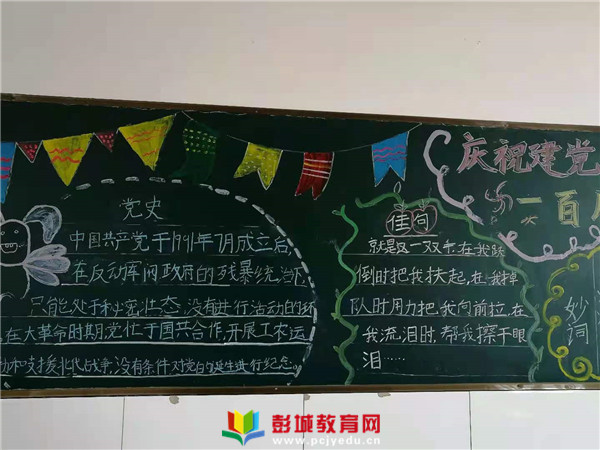 庆祝建党
一百周
党史
中国共产党于1991年7月成立后,
在反动军阀政府的残暴统治下
只能处于秘密状态,没有进行活动的环
在大革命时期,党忙于国共合作,开展工农运
动和支援北伐战争,没有条件对党的诞生进行纪念。
佳句
就是这一双手,在我跌
倒时把我扶起,在我掉
队时用力把我向前拉,在
我流泪时,帮我擦干眼
泪……
妙词
彭城教育网
www.pcjyedu.cn